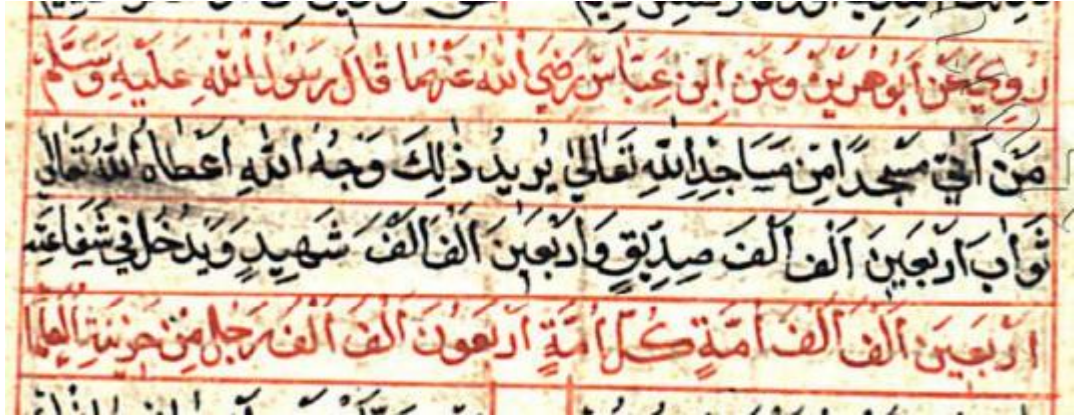 رُوِيَ عَنْ أَبُو هُرَيْرَةَ وَعَنْ اِبْنِ عَبَّاسٍ رَضِيَ اللّٰهُ عَنْهُمَا قَالَ رَسُولُ اللّٰهِ عَلَيْهِ وَسَلَّمَ
مَنْ اَتٰى مَسْجِدًا مِنْ مَسَاجِدِ اللّٰهِ تَعَالٰى يُرِيدُ ذٰلِكَ وَجْهُ اللّٰهِ اَعْطَاهُ اللّٰهُ تَعَالٰى
ثَوَابَ اَرْبَعِينَ اَلْفَ اَلْفَ صِدِّيقٍ وَاَرْبَعِينَ اَلْفَ اَلْفَ شَهِيدٍ وَيَدْخُلُ فِي شَفَاعَتِهِ
اَرْبَعِينَ اَلْفَ اَلْفَ اُمَّةٍ كُلُّ اُمَّةٍ اَرْبَعُونَ اَلْفَ اَلْفَ رَجُلٍ مِنْ